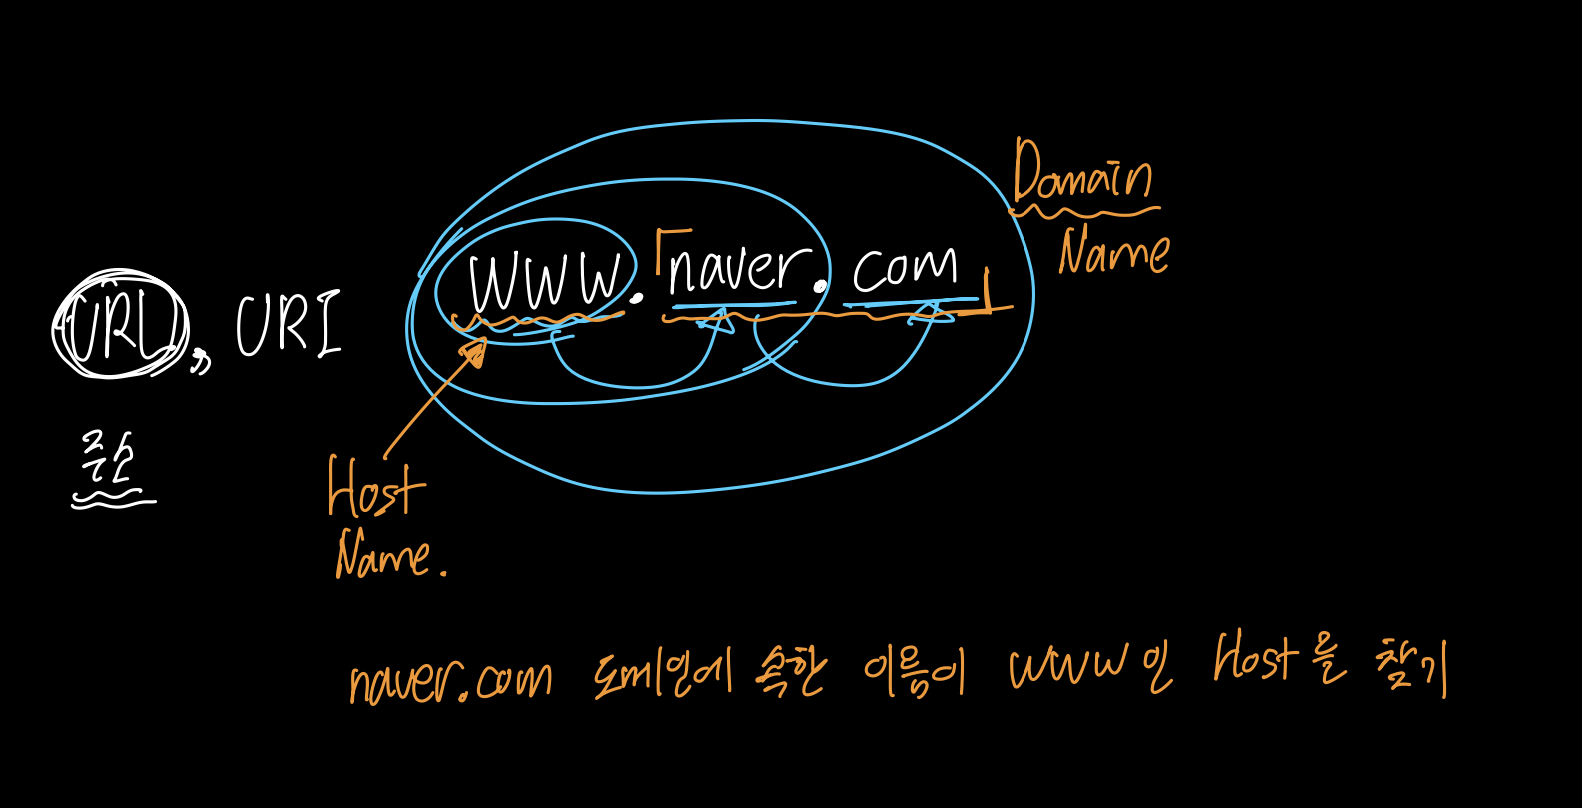 URL, URI
주소
www.「naver.com」
Domain
Name
Host
Name.
naver.com 도메인에 속한 이름이 www인 Host를 찾기